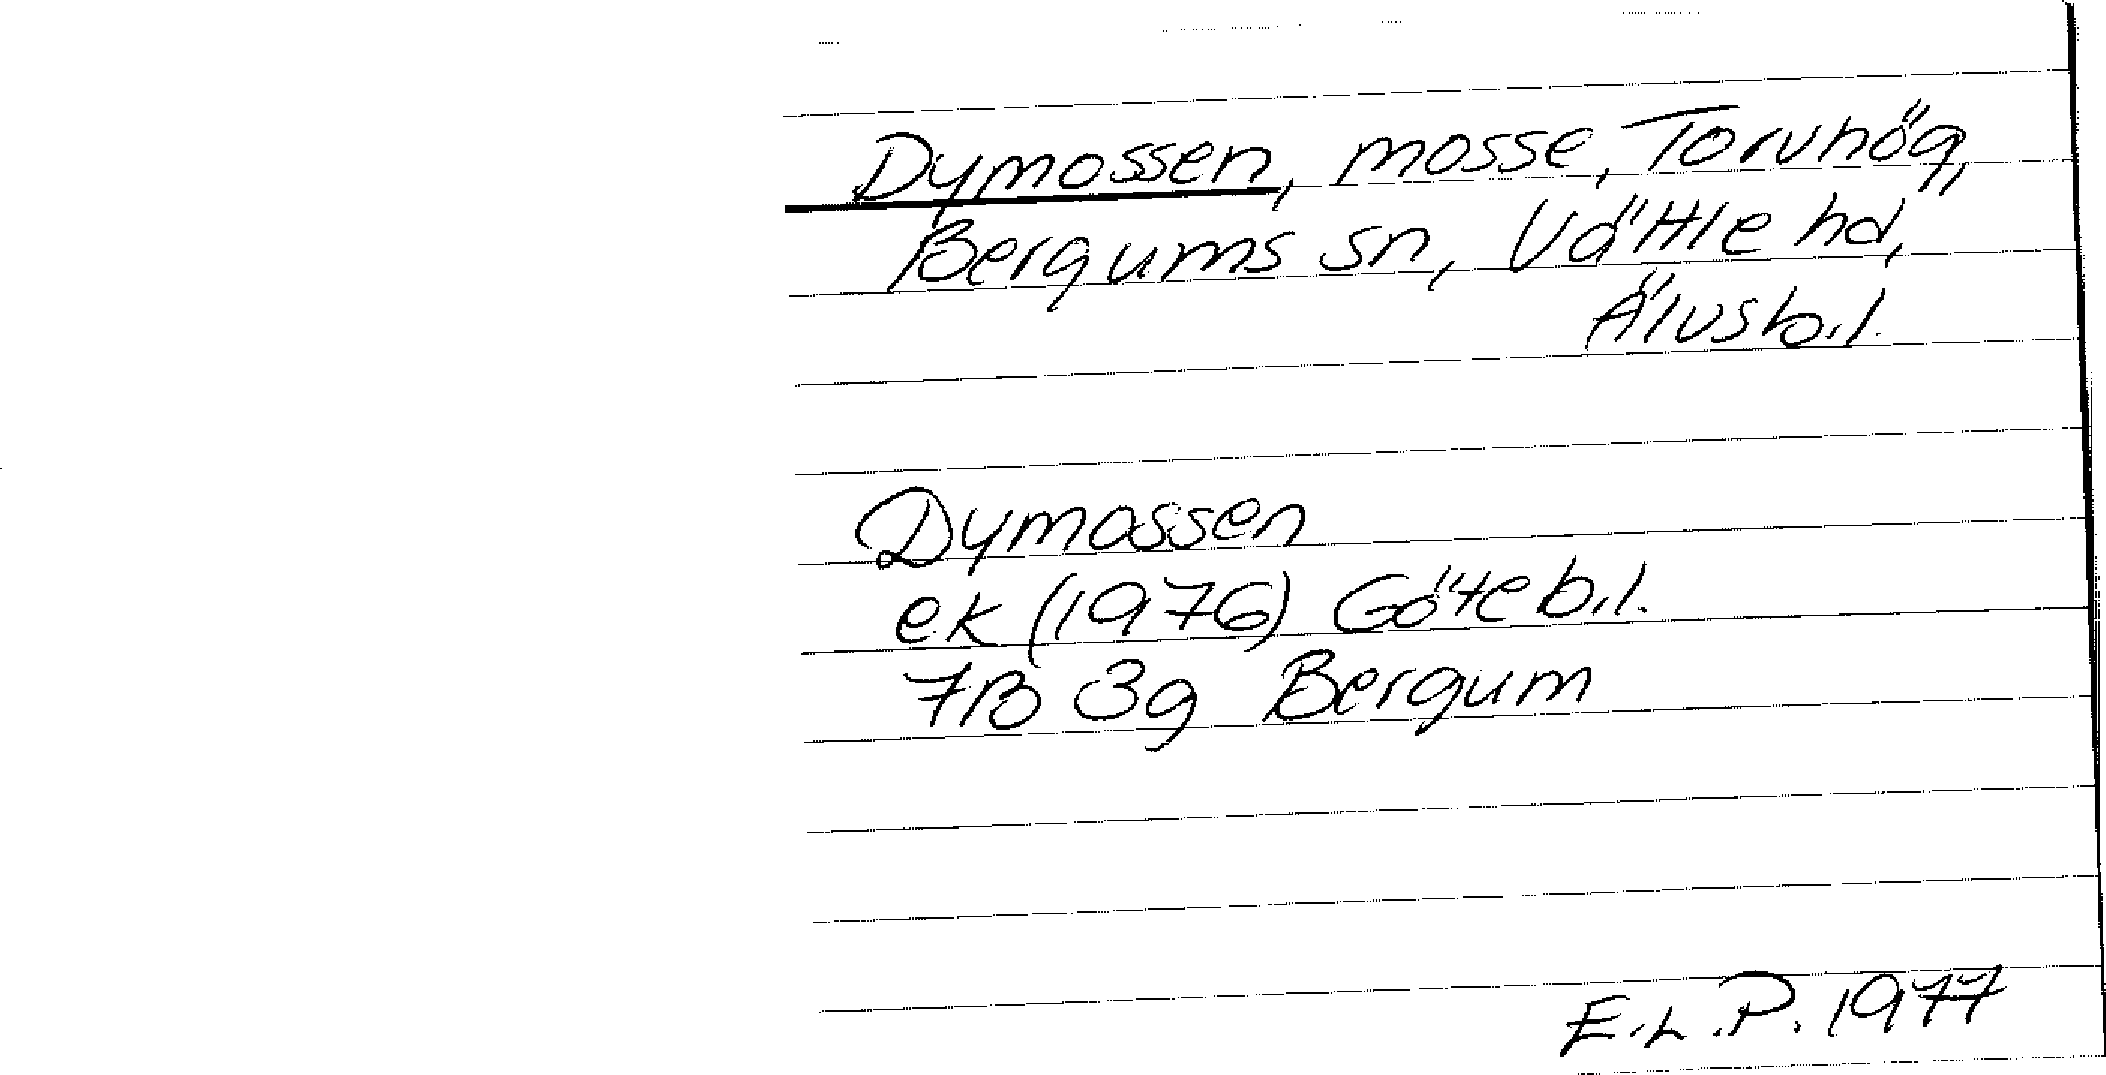 Dymossen, mosse, Torvhög,
Bergums sn, Vättle hd,
Älvsb.l.
Dymossen
ek (1976) Göteb.l.
7B 3g Bergum
E.L.P. 1977